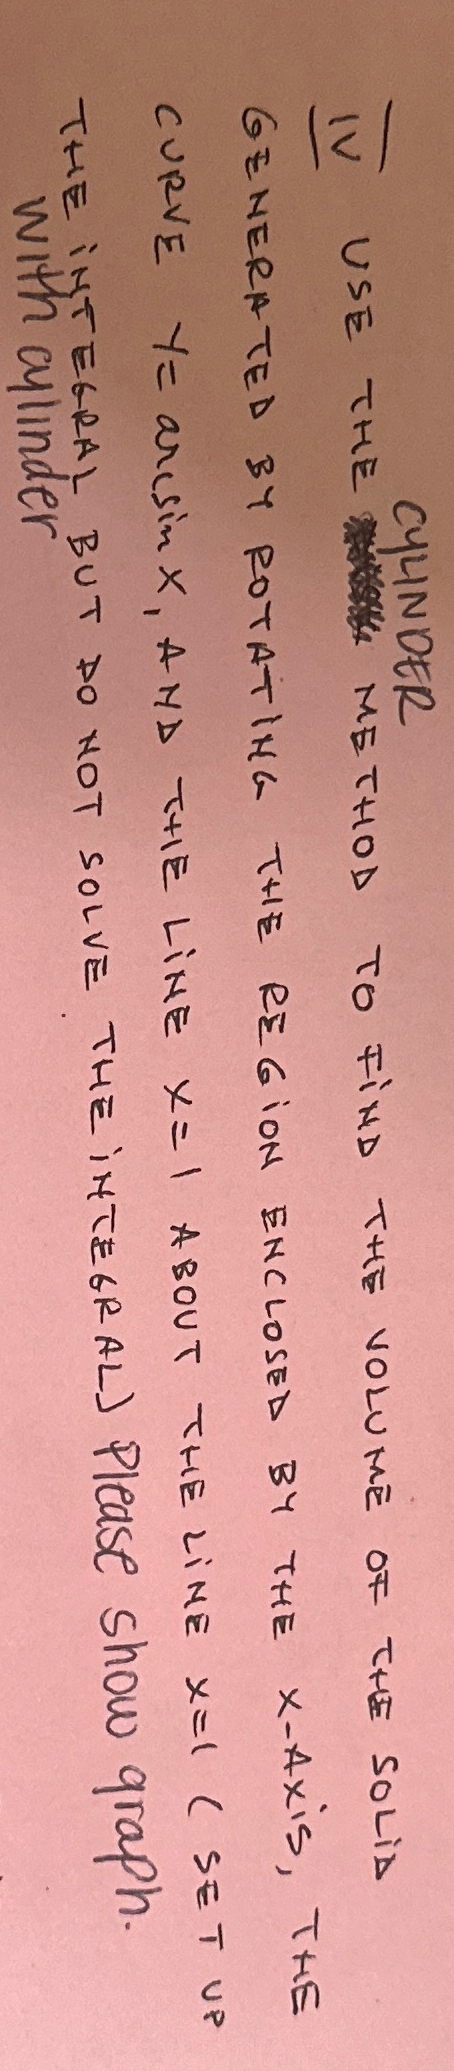 IV USE THE CYLINDER METHOD TO FIND THE VOLUME OF THE SOLID
GENERATED BY ROTATING THE REGION ENCLOSED BY THE X-AXIS, THE
CURVE Y= arcsin X, AND THE LINE X=1 ABOUT THE LINE X=1 (SET UP
THE INTEGRAL BUT DO NOT SOLVE THE INTEGRAL) Please show graph.
With cylinder